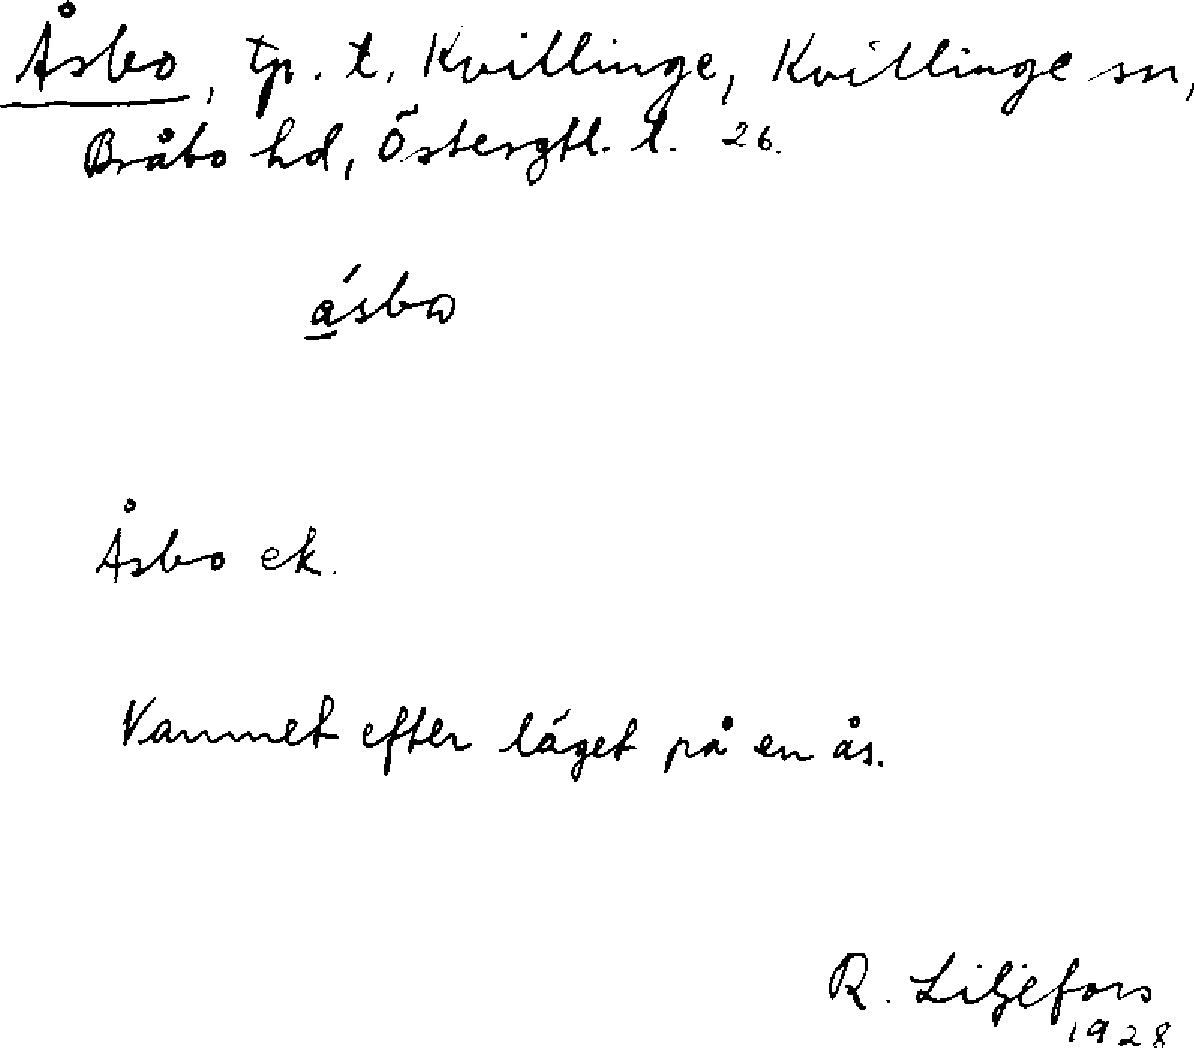 Åsbo, tp. t. Kvillinge, Kvillinge sn,
Bråbo hd, Östergtl. l. 26.
ásbω
Åsbo ek.
Namnet efter läget på en ås.
R. Liljefors
1928